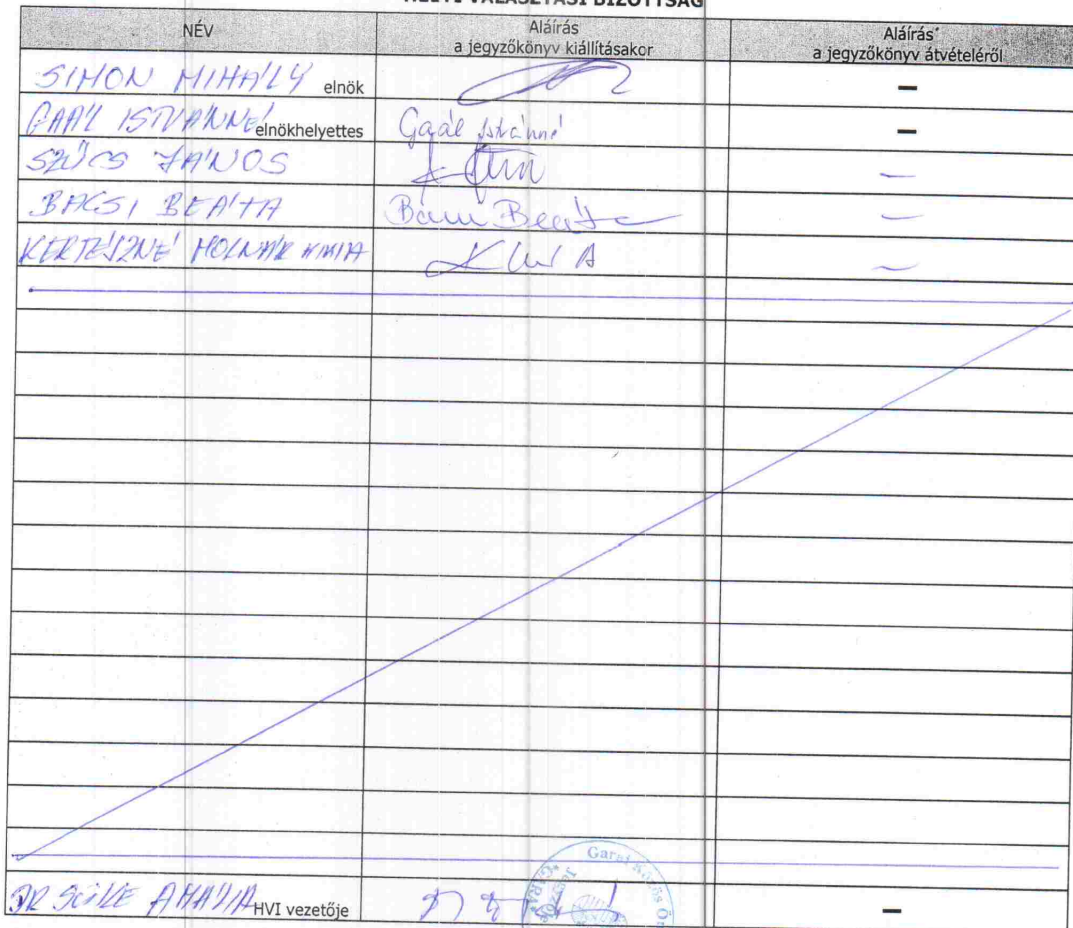 HELYI VÁLASZTÁSI BIZOTTSÁG
NÉV
Aláírás
a jegyzőkönyv kiállításakor
Aláírás*
a jegyzőkönyv átvételéről
SIMON MIHÁLY elnök
–
GAÁL ISTVÁNNÉ elnökhelyettes Gaál Istvánné –
SZŰCS JÁNOS –
BACSI BEÁTA Beáta –
KERTÉSZNÉ MOLNÁR –
DR AMÁLIA HVI vezetője –
Garai Közös Ö